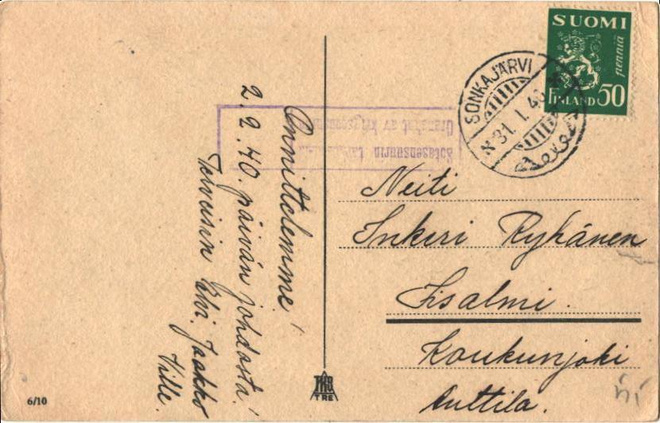 Onnittelemme!
2.2.40. päivän johdosta!
Terveisin Jaakko
Ville.
6/10
TKO
TRE
SUOMI
penniä
FINLAND 50
SONKAJÄRVI
31.1.40
Sotasensuurin
Granskat av krigscensuren
Neiti
Inkeri Rykänen
Iisalmi.
Koukunjoki
Anttila.